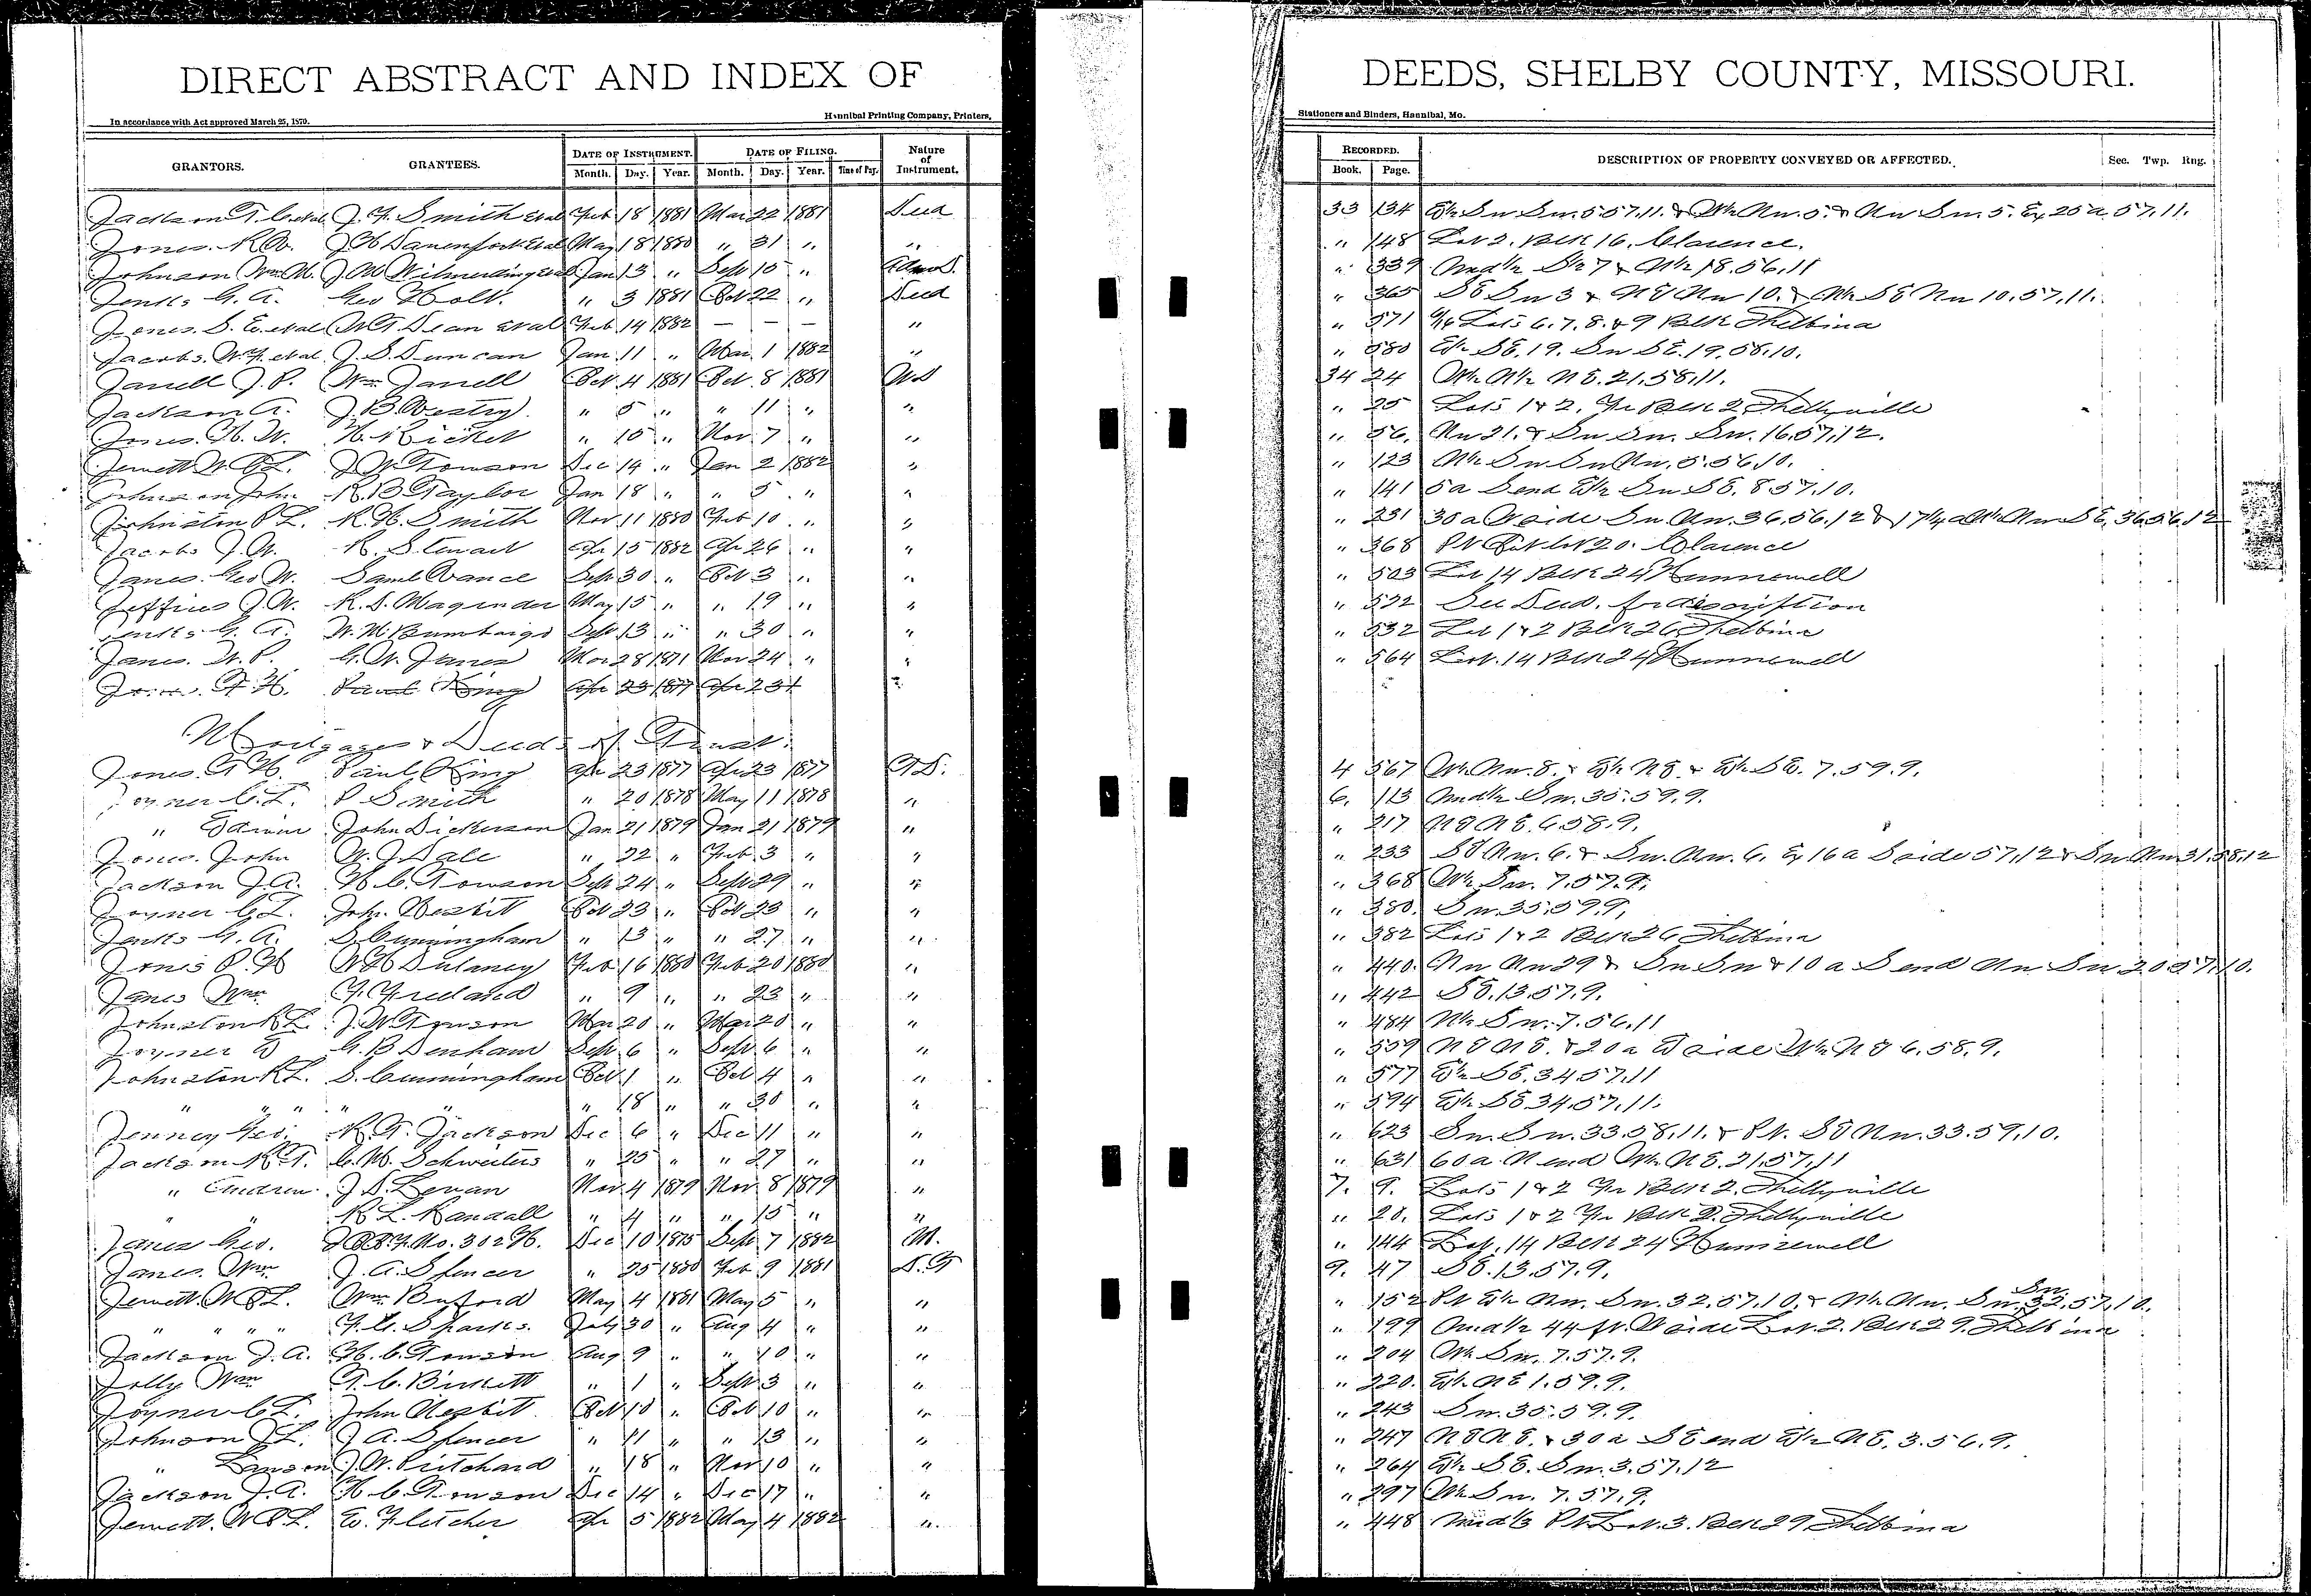 DIRECT ABSTRACT AND INDEX OF DEEDS, SHELBY COUNTY, MISSOURI.
In accordance with Act approved March 25, 1870. Hannibal Printing Company, Printers, Stationers and Binders, Hannibal, Mo.
GRANTORS. GRANTEES. DATE OF INSTRUMENT. DATE OF FILING. Nature of Instrument. RECORDED. DESCRIPTION OF PROPERTY CONVEYED OR AFFECTED. Sec. Twp. Rng.
Month. Day. Year. Month. Day. Year. Time of Day. Book. Page.
Jackson T. C. etal J. F. Smith etal Feb 18 1881 Mar 22 1881 Deed 33 134
Jones. R. W. May 18 1880 " 31 " " " 148 Lot 2. Blk 16. Clarence.
Johnson Wm M. Jan 13 " Sept 15 " " 339 56.11
Jenks G. A. Geo Holt. " 3 1881 Oct 22 " Deed " 365 SE Sw 3 & NE Nw 10. & W½ SE Nw 10.57.11.
Jones. S. E. etal W. T. Dean etal Feb 14 1882 — — — " " 571 Lots 6.7.8.&9 Blk Shelbina
Jacobs. W. F. etal J. S. Duncan Jan 11 " Mar. 1 1882 " " 580 E½ SE. 19. Sw SE. 19.58.10.
Janell J. P. Wm Janell Oct. 4 1881 Oct. 8 1881 WD 34 24 W½ N½ NE. 21.58.11.
Jackson A. J. B. " 5 " " 11 " " " 25 Lots 1 & 2. Fr Blk 2 Shelbyville
Jones. H. W. H. Bickel " 15 " Nov. 7 " " " 56. Nw 21. & Sw Sw. Sw. 16.57.12.
Jewett W. O. L. J. W. Towson Dec 14 " Jan 2 1882 " " 123 5.56.10.
Johnson John R. B. Taylor Jan 18 " " 5 " " " 141 5a S end E½ Sw SE. 8.57.10.
Johnston R. L. R. H. Smith Nov 11 1880 Feb 10 " " " 231 30a W side Sw. Nw. 36.56.12
Jacobs J. W. R. Stewart Apr 15 1882 Apr 26 " " " 368 Pt Out lot 20. Clarence
Janes. Geo W. Saml Vance Sept 30 " Oct 3 " " " 503 Lot 14 Blk 24 Hunnewell
Jeffries J. W. R. S. Magruder May 15 " " 19 " " " 522 See Deed. for discription
Jenks G. A. W. M. Sept 13 " " 30 " " " 532 Lot 1 & 2 Blk 26 Shelbina
Janes. W. P. G. W. Janes Mar 28 1871 Nov 24 " " " 564 Lot. 14 Blk 24 Hunnewell
Jones. T. H. Paul King Apr 23 1877 Apr 23
Mortgages & Deeds of Trust.
Jones. T. H. Paul King Apr 23 1877 Apr 23 1877 T.D. 4 567 W½ Nw. 8. & E½ NE. & E½ SE. 7.59.9.
Joyner C. L. P Smith " 20 1878 May 11 1878 " 6. 113 Und½ Sw. 35.59.9.
" Edwin John Dickerson Jan 21 1879 Jan 21 1879 " " 217 NE NE. 6.58.9.
Jones. John W. J. Dale " 22 " Feb. 3 " " " 233 SE Nw. 6. & Sw. Nw. 6. Ex 16a S side 57.12 & Sw. Nw 31.58.12
Jackson J. A. H. C. Towson Sept 24 " Sept 29 " " " 368 W½ Sw. 7.57.9.
Joyner C. L. John. Nesbit Oct 23 " Oct 23 " " " 380. Sw. 35.59.9.
Jenks G. A. S. Cunningham " 13 " " 27 " " " 382 Lots 1 & 2 Blk 26 Shelbina
Jones P. H W. H. Dulaney Feb 16 1880 Feb 20 1880 " " 440. Nw Nw 29 & Sw Sw & 10a S end Nw Sw 20.57.10.
Janes Wm F. Freeland " 9 " " 23 " " " 442 SE. 13.57.9.
Johnston R L J. W. Towson Mar 20 " Mar 20 " " " 484 N½ Sw. 7.56.11
Joyner E G. B Denham Sept. 6 " Sept. 6 " " " 559 NE NE. & 20a E side W½ NE 6.58.9.
Johnston R. L. S. Cunningham Oct 1 " Oct 4 " " " 577 E½ SE. 34.57.11
" " " " " " 18 " " 30 " " " 594 E½ SE 34.57.11.
Jenney Geo. R. T. Jackson Dec 6 " Dec 11 " " " 623 Sw. Sw. 33.58.11. & Pt. SE Nw. 33.59.10.
Jackson R. T. C. M. Schwieters " 25 " " 27 " " " 631 60a N end W½ NE. 21.57.11
" Andrew. J. D. Levan Nov. 4 1879 Nov. 8 1879 " 7. 9. Lots 1 & 2 Fr Blk 2. Shelbyville
" " R L. Randall " 4 " " 15 " " " 20. Lots 1 & 2 Fr Blk 2. Shelbyville
Janes Geo. I.O.O.F. No. 302 Dec 10 1875 Sept. 7 1882 M. " 144 Lot. 14 Blk 24 Hunnewell
Janes. Wm J. A. Spencer " 25 1880 Feb. 9 1881 D.T 9. 47 SE. 13.57.9.
Jewett. W. O. L. Wm Buford May 4 1881 May 5 " " " 152 Pt E½ Nw. Sw. 32.57.10. & N½ Nw. Sw. Sw. 32.57.10.
" " " " Sparks. July 30 " Aug 4 " " " 199 Und½ 44 ft. W side Lot. 2. Blk 29. Shelbina
Jackson J. A. H. C. Towson Aug 9 " " 10 " " " 204 W½ Sw. 7.57.9.
Jolly Wm T. C. " 1 " Sept. 3 " " " 220. E½ NE 1.59.9.
Joyner C. L. John Nesbit Oct 10 " Oct 10 " " " 243 Sw. 35.59.9.
Johnson J L. J A. Spencer " 11 " " 13 " " " 247 NE NE. & 30a SE end E½ NE. 3.56.9.
" J. W. Pritchard " 18 " Nov 10 " " " 264 E½ SE. Sw. 3.57.12
Jackson J. A. H. C. Towson Dec 14 " Dec 17 " " " 297 W½ Sw. 7.57.9.
Jewett. W O L. E. Fletcher Apr 5 1882 May 4 1882 " " 448 Und⅓ Pt Lot. 3. Blk 29 Shelbina